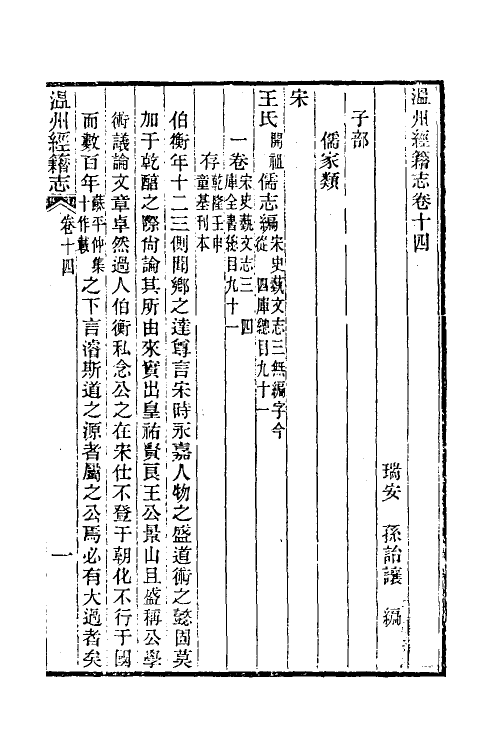 溫州經籍志卷十四
瑞安　孫詒讓　編
子部
儒家類
宋
王氏開祖儒志編宋史藝文志三無編字今從四庫總目九十一
一卷宋史藝文志三四庫全書總目九十一
存乾隆壬申童基刊本
伯衡年十二三側聞鄉之達尊言宋時永嘉人物之盛道術之懿固莫
加于乾醕之際尙論其所由來實出皇祐賢良王公景山且盛稱公學
術議論文章卓然過人伯衡私念公之在宋仕不登于朝化不行于國
而數百年蘇平仲集十作數之下言濬斯道之源者屬之公焉必有大過者矣
溫州經籍志　卷十四　一